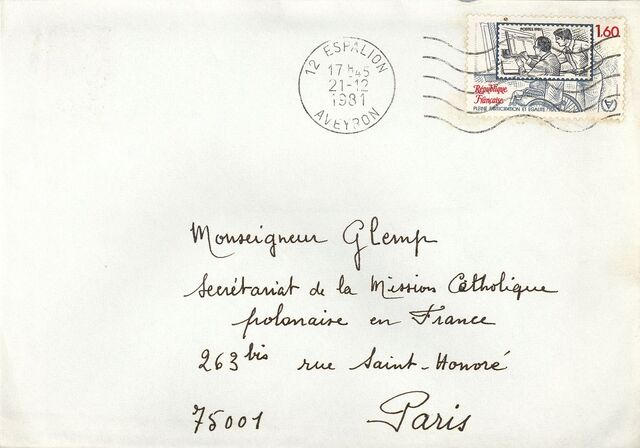 12 ESPALION
17 H45
21-12
1981
AVEYRON
POSTES 1981
1,60
République
Française
PLEINE PARTICIPATION ET EGALITE
Monseigneur Glemp
Secrétariat de la Mission Catholique
polonaise en France
263 bis rue Saint-Honoré
75001 Paris